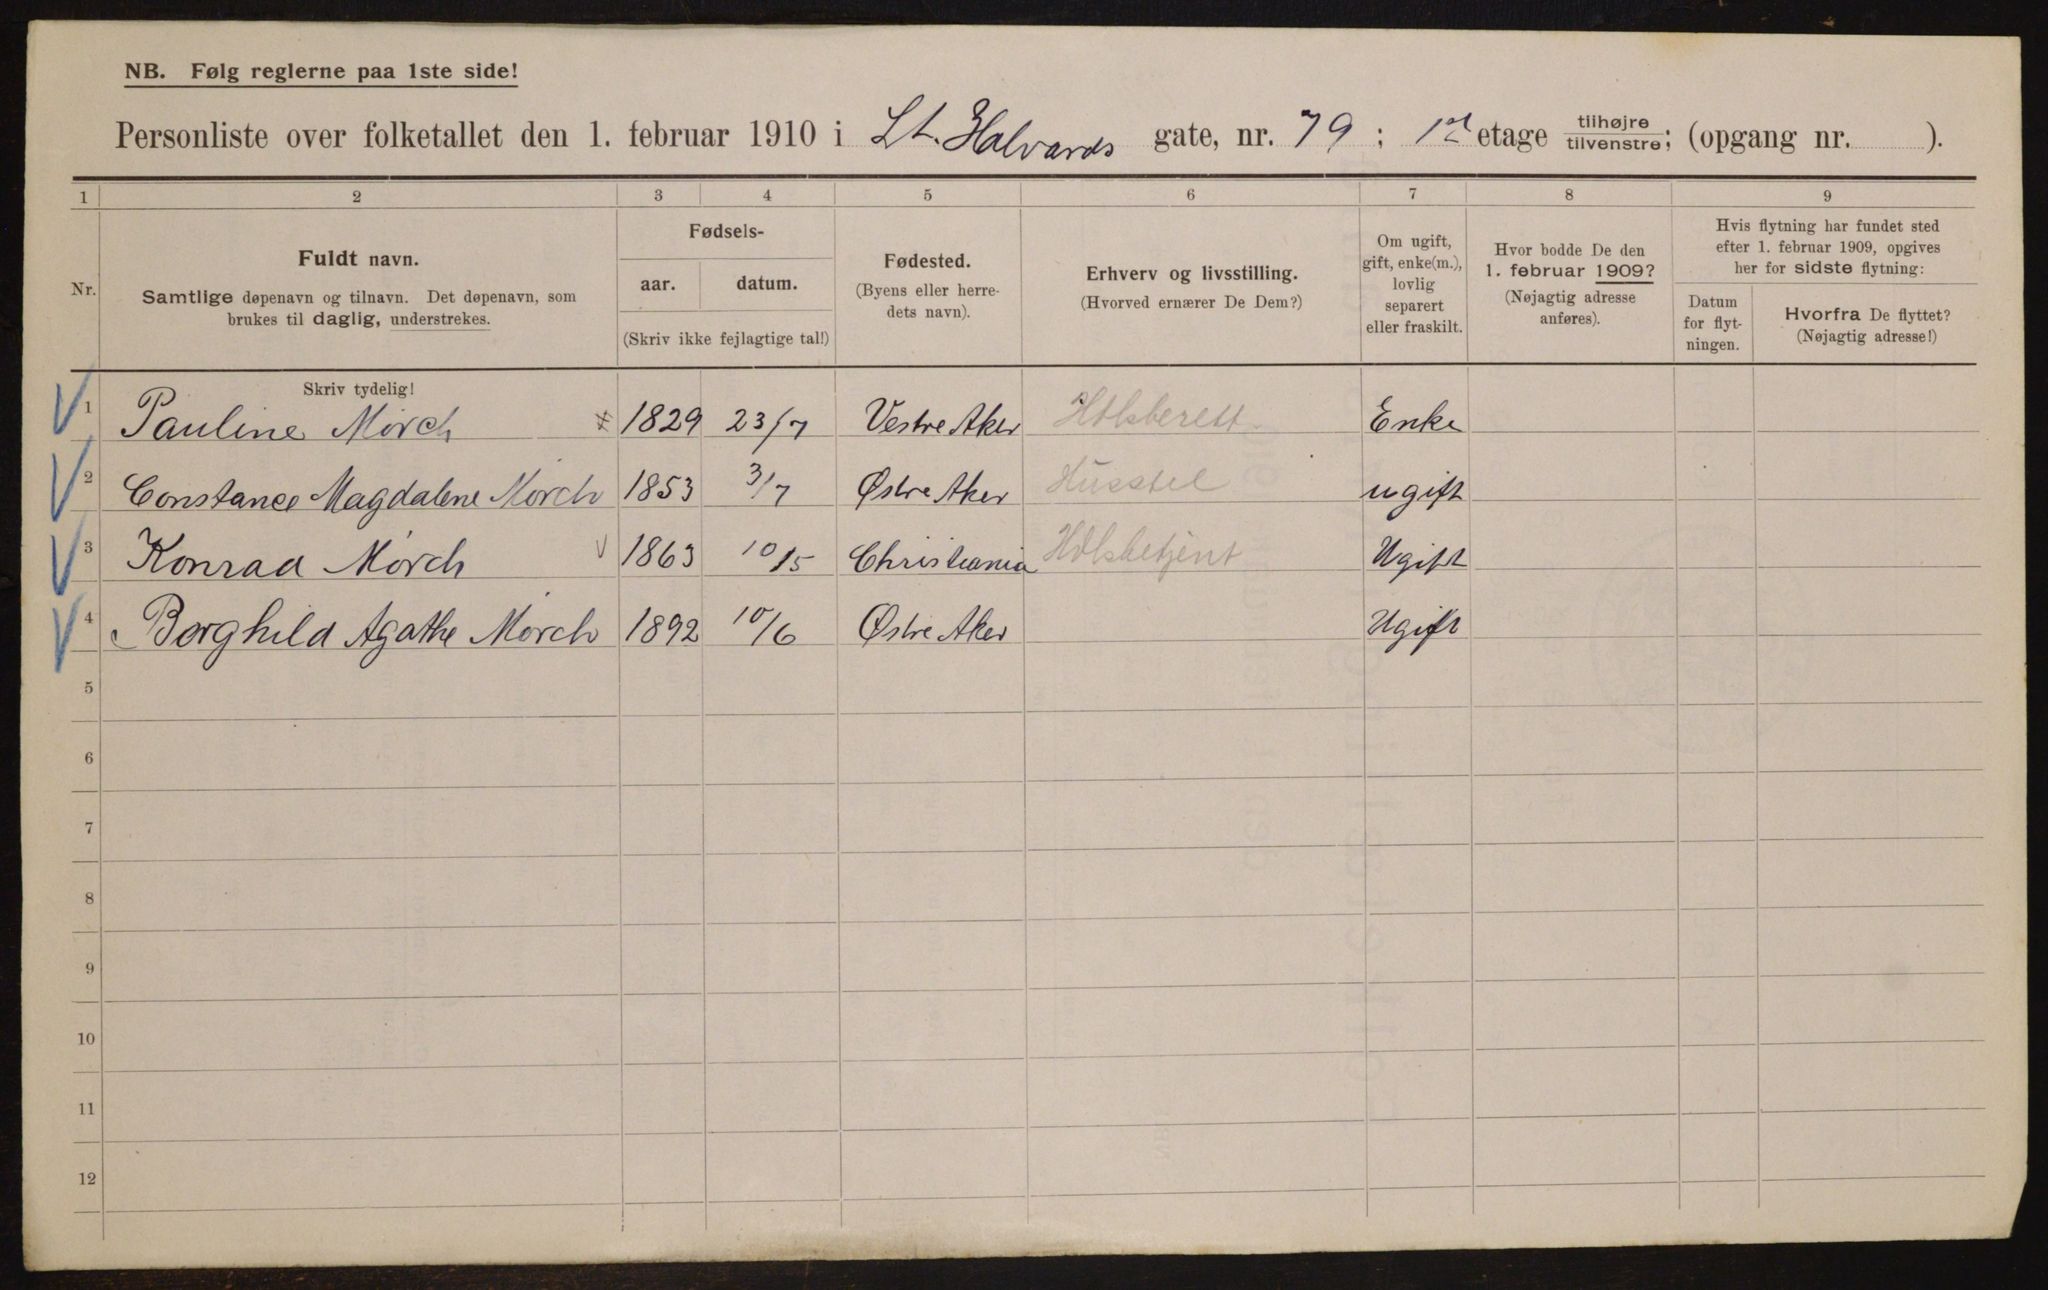 NB. Følg reglerne paa 1ste side!
Personliste over folketallet den 1. februar 1910 i St. Halvards gate, nr. 79; 1ste etage tilhøjre/tilvenstre; (opgang nr. ).
1 2 3 4 5 6 7 8 9
Nr.
Fuldt navn.
Samtlige døpenavn og tilnavn. Det døpenavn, som
brukes til daglig, understrekes.
Fødsels-
aar. datum.
(Skriv ikke fejlagtige tal!)
Fødested.
(Byens eller herre-
dets navn).
Erhverv og livsstilling.
(Hvorved ernærer De Dem?)
Om ugift,
gift, enke(m.),
lovlig
separert
eller fraskilt.
Hvor bodde De den
1. februar 1909?
(Nøjagtig adresse
anføres).
Hvis flytning har fundet sted
efter 1. februar 1909, opgives
her for sidste flytning:
Datum
for flyt-
ningen.
Hvorfra De flyttet?
(Nøjagtig adresse!)
Skriv tydelig!
1 Pauline Mørch 1829 23/7 Vestre Aker Hdlsberett. Enke
2 Constance Magdalene Mørch 1853 3/7 Østre Aker Husstel ugift
3 Konrad Mørch 1863 10/5 Christiania Hdlsbetjent Ugift
4 Borghild Agathe Mørch 1892 10/6 Østre Aker Ugift
5
6
7
8
9
10
11
12